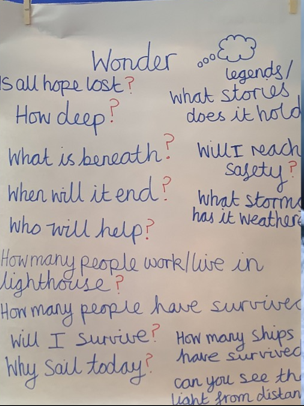 Wonder
Is all hope lost?
How deep?
What is beneath?
When will it end?
Who will help?
legends/
What stories
does it hold
Will I reach
safety?
What storm
has it weather
How many people work/live in
lighthouse?
How many people have survived
Will I survive?
Why sail today?
How many ships
have survived
can you see th
light from distan